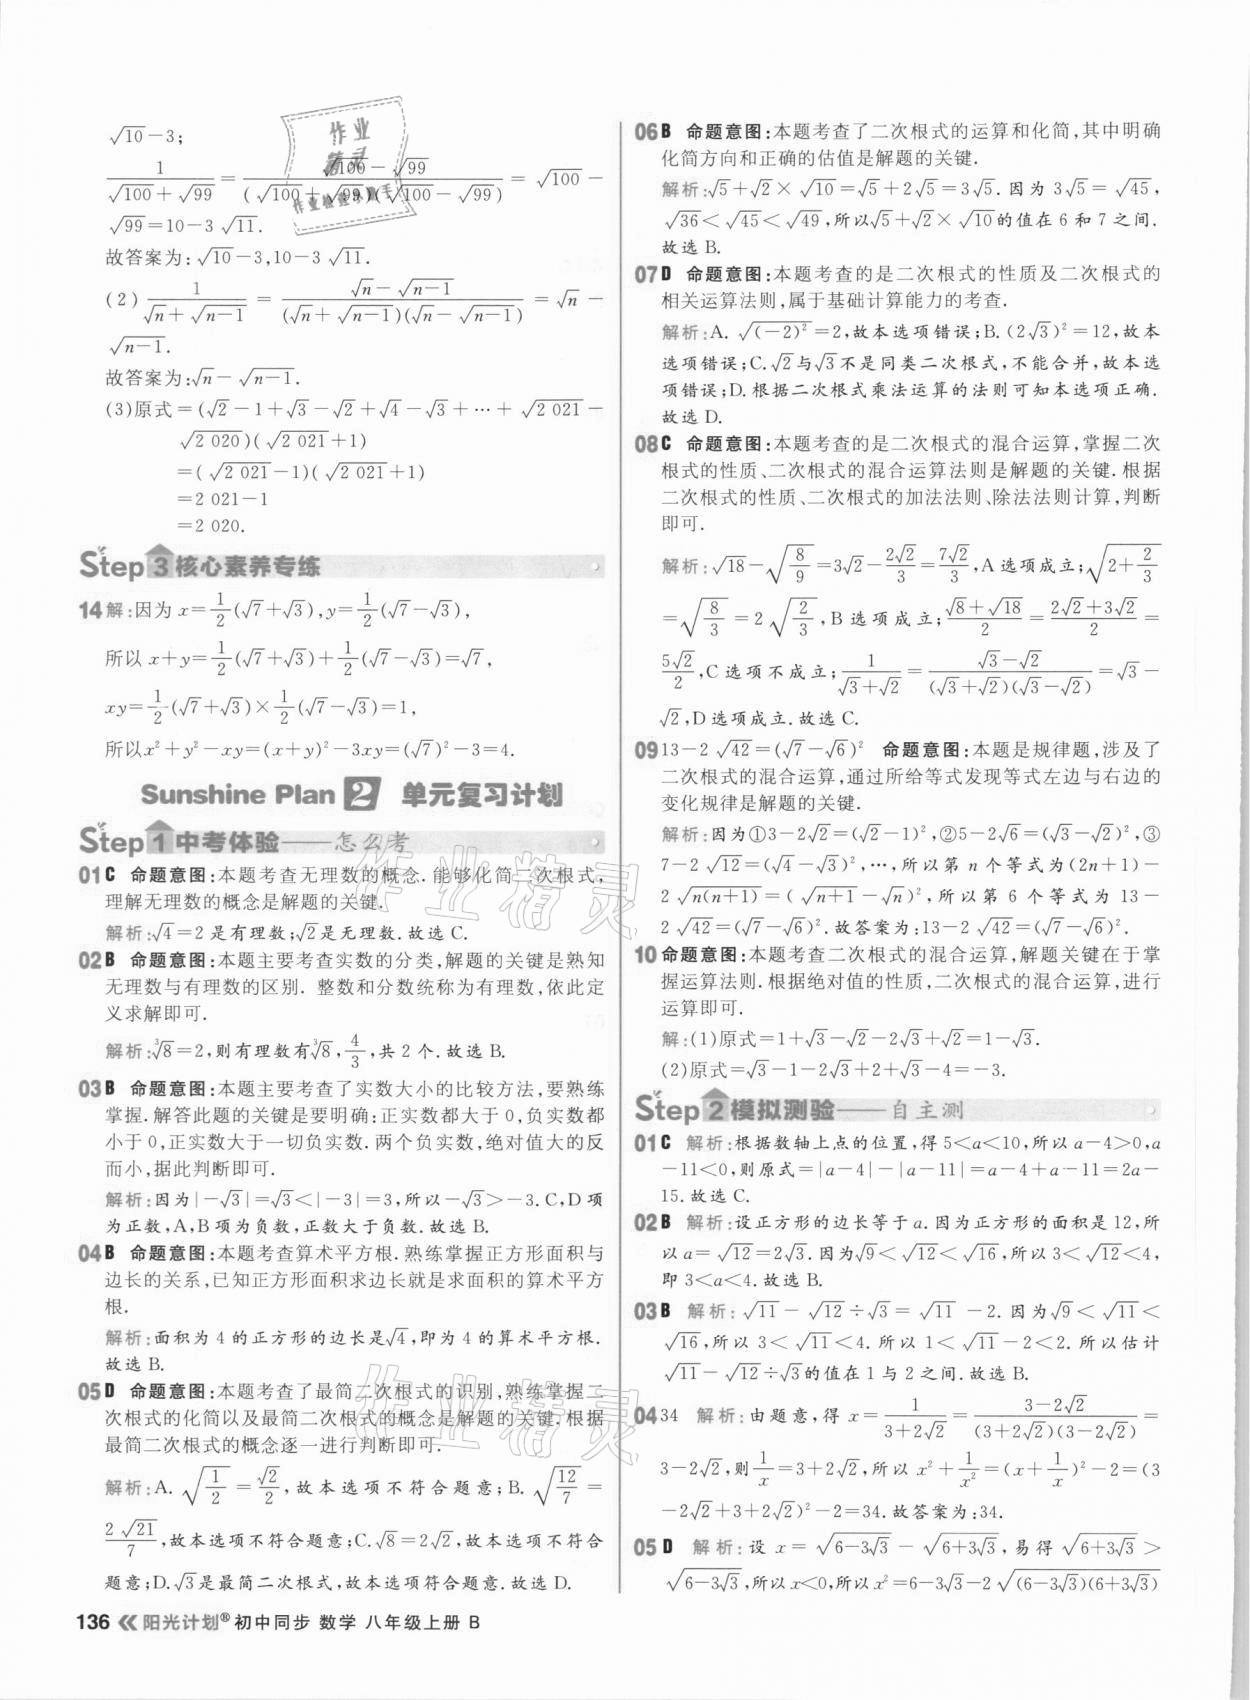 √10-3;
1/(√100+√99)=(√100-√99)/((√100+√99)(√100-√99))=√100-
√99=10-3√11.
故答案为:√10-3,10-3√11.
(2)1/(√n+√(n-1))=(√n-√(n-1))/((√n+√(n-1))(√n-√(n-1)))=√n-
√(n-1).
故答案为:√n-√(n-1).
(3)原式=(√2-1+√3-√2+√4-√3+…+√2 021-
√2 020)(√2 021+1)
=(√2 021-1)(√2 021+1)
=2 021-1
=2 020.
Step 3 核心素养专练
14 解:因为x=1/2(√7+√3),y=1/2(√7-√3),
所以x+y=1/2(√7+√3)+1/2(√7-√3)=√7,
xy=1/2(√7+√3)×1/2(√7-√3)=1,
所以x²+y²-xy=(x+y)²-3xy=(√7)²-3=4.
Sunshine Plan 2 单元复习计划
Step 1 中考体验——怎么考
01 C 命题意图:本题考查无理数的概念.能够化简二次根式,
理解无理数的概念是解题的关键.
解析:√4=2是有理数;√2是无理数.故选C.
02 B 命题意图:本题主要考查实数的分类,解题的关键是熟知
无理数与有理数的区别. 整数和分数统称为有理数,依此定
义求解即可.
解析:∛8=2,则有理数有∛8,4/3,共2个.故选B.
03 B 命题意图:本题主要考查了实数大小的比较方法,要熟练
掌握.解答此题的关键是要明确:正实数都大于0,负实数都
小于0,正实数大于一切负实数.两个负实数,绝对值大的反
而小,据此判断即可.
解析:因为|-√3|=√3<|-3|=3,所以-√3>-3.C,D项
为正数,A,B项为负数,正数大于负数.故选B.
04 B 命题意图:本题考查算术平方根.熟练掌握正方形面积与
边长的关系,已知正方形面积求边长就是求面积的算术平方
根.
解析:面积为4的正方形的边长是√4,即为4的算术平方根.
故选B.
05 D 命题意图:本题考查了最简二次根式的识别,熟练掌握二
次根式的化简以及最简二次根式的概念是解题的关键.根据
最简二次根式的概念逐一进行判断即可.
解析:A.√(1/2)=√2/2,故本选项不符合题意;B.√(12/7)=
2√21/7,故本选项不符合题意;C.√8=2√2,故本选项不符合
题意;D.√3是最简二次根式,故本选项符合题意.故选D.
136 阳光计划® 初中同步 数学 八年级上册 B
06 B 命题意图:本题考查了二次根式的运算和化简,其中明确
化简方向和正确的估值是解题的关键.
解析:√5+√2×√10=√5+2√5=3√5.因为3√5=√45,
√36<√45<√49,所以√5+√2×√10的值在6和7之间.
故选B.
07 D 命题意图:本题考查的是二次根式的性质及二次根式的
相关运算法则,属于基础计算能力的考查.
解析:A.√(-2)²=2,故本选项错误;B.(2√3)²=12,故本
选项错误;C.√2与√3不是同类二次根式,不能合并,故本选
项错误;D.根据二次根式乘法运算的法则可知本选项正确.
故选D.
08 C 命题意图:本题考查的是二次根式的混合运算,掌握二次
根式的性质、二次根式的混合运算法则是解题的关键.根据
二次根式的性质、二次根式的加法法则、除法法则计算,判断
即可.
解析:√18-√(8/9)=3√2-2√2/3=7√2/3,A选项成立;√(2+2/3)
=√(8/3)=2√(2/3),B选项成立;(√8+√18)/2=(2√2+3√2)/2=
5√2/2,C选项不成立;1/(√3+√2)=(√3-√2)/((√3+√2)(√3-√2))=√3-
√2,D选项成立.故选C.
09 13-2√42=(√7-√6)² 命题意图:本题是规律题,涉及了
二次根式的混合运算,通过所给等式发现等式左边与右边的
变化规律是解题的关键.
解析:因为①3-2√2=(√2-1)²,②5-2√6=(√3-√2)²,③
7-2√12=(√4-√3)²,…,所以第n个等式为(2n+1)-
2√(n(n+1))=(√(n+1)-√n)²,所以第6个等式为13-
2√42=(√7-√6)².故答案为:13-2√42=(√7-√6)².
10 命题意图:本题考查二次根式的混合运算,解题关键在于掌
握运算法则.根据绝对值的性质,二次根式的混合运算,进行
运算即可.
解:(1)原式=1+√3-√2-2√3+√2=1-√3.
(2)原式=√3-1-2√3+2+√3-4=-3.
Step 2 模拟测验——自主测
01 C 解析:根据数轴上点的位置,得5<a<10,所以a-4>0,a
-11<0,则原式=|a-4|-|a-11|=a-4+a-11=2a-
15.故选C.
02 B 解析:设正方形的边长等于a.因为正方形的面积是12,所
以a=√12=2√3.因为√9<√12<√16,所以3<√12<4,
即3<a<4.故选B.
03 B 解析:√11-√12÷√3=√11-2.因为√9<√11<
√16,所以3<√11<4.所以1<√11-2<2.所以估计
√11-√12÷√3的值在1与2之间.故选B.
04 34 解析:由题意,得x=1/(3+2√2)=(3-2√2)/((3+2√2)(3-2√2))=
3-2√2,则1/x=3+2√2,所以x²+1/x²=(x+1/x)²-2=(3
-2√2+3+2√2)²-2=34.故答案为:34.
05 D 解析:设x=√(6-3√3)-√(6+3√3),易得√(6+3√3)>
√(6-3√3),所以x<0,所以x²=6-3√3-2√((6-3√3)(6+3√3))
作业
精灵
作业精灵
作业精灵